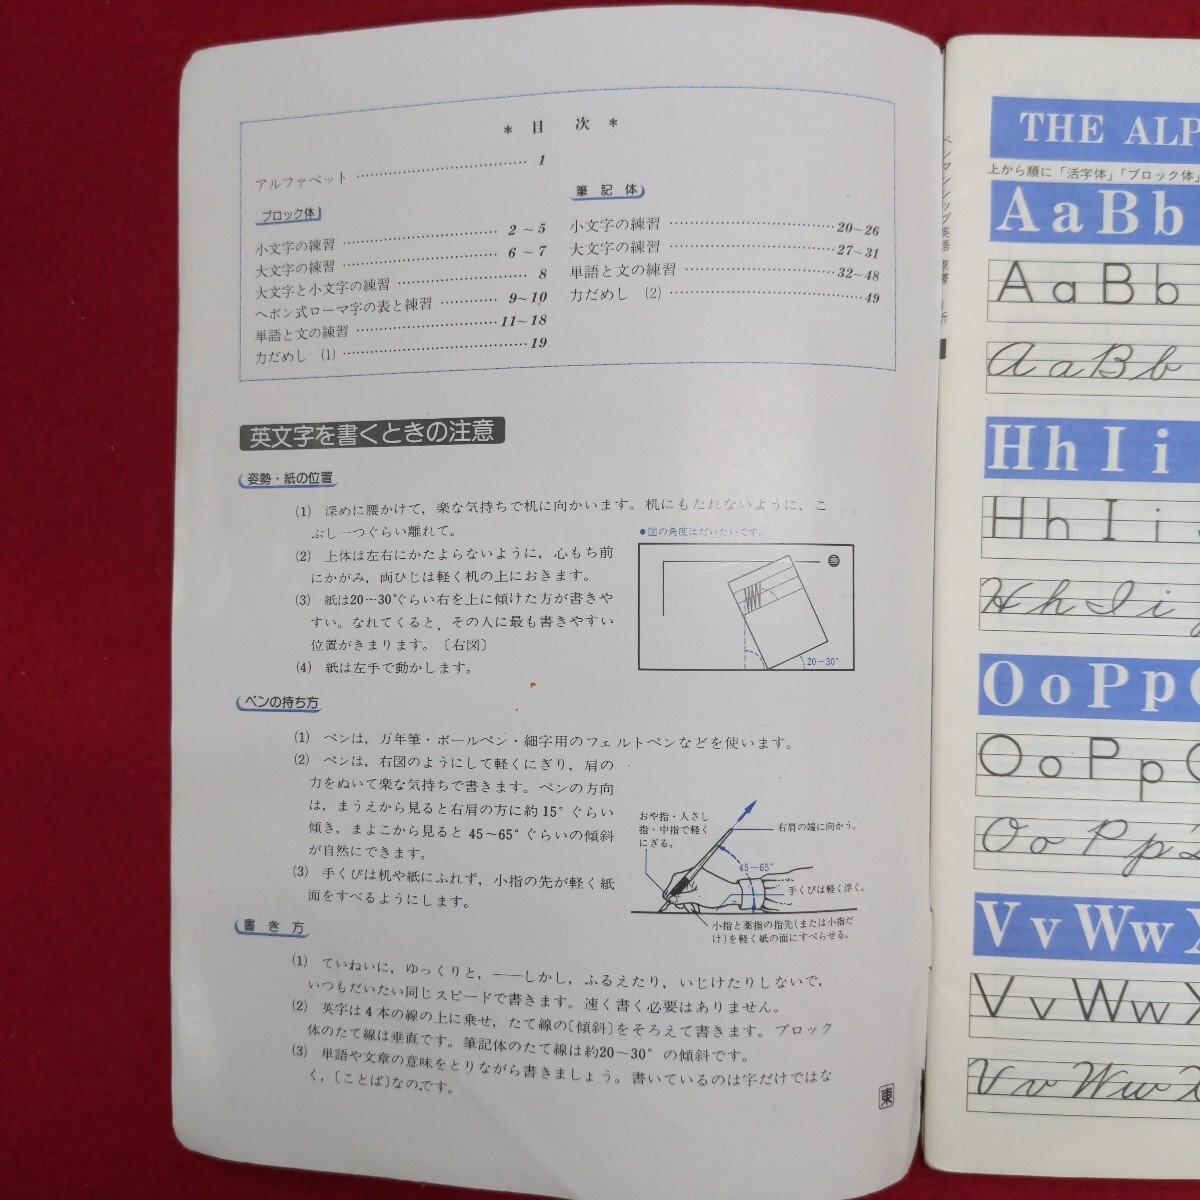 ＊ 目 次 ＊
アルファベット ……………………………… 1
ブロック体
小文字の練習 ……………………………… 2～5
大文字の練習 ……………………………… 6～7
大文字と小文字の練習 ……………………… 8
ヘボン式ローマ字の表と練習 ………… 9～10
単語と文の練習 ………………………… 11～18
力だめし (1) ……………………………… 19
筆記体
小文字の練習 ……………………………… 20～26
大文字の練習 ……………………………… 27～31
単語と文の練習 …………………………… 32～48
力だめし (2) ……………………………… 49
英文字を書くときの注意
姿勢・紙の位置
(1) 深めに腰かけて，楽な気持ちで机に向かいます。机にもたれないように，こ
ぶし一つぐらい離れて。
(2) 上体は左右にかたよらないように，心もち前
にかがみ，両ひじは軽く机の上におきます。
(3) 紙は20～30°ぐらい右を上に傾けた方が書きや
すい。なれてくると，その人に最も書きやすい
位置がきまります。〔右図〕
(4) 紙は左手で動かします。
●図の角度はだいたいです。
20－30°
ペンの持ち方
(1) ペンは，万年筆・ボールペン・細字用のフェルトペンなどを使います。
(2) ペンは，右図のようにして軽くにぎり，肩の
力をぬいて楽な気持ちで書きます。ペンの方向
は，まうえから見ると右肩の方に約15°ぐらい
傾き，まよこから見ると45～65°ぐらいの傾斜
が自然にできます。
(3) 手くびは机や紙にふれず，小指の先が軽く紙
面をすべるようにします。
おや指・人さし
指・中指で軽く
にぎる。
右肩の端に向かう。
45～65°
手くびは軽く浮く。
小指と薬指の指先(または小指だ
け)を軽く紙の面にすべらせる。
書き方
(1) ていねいに，ゆっくりと，――しかし，ふるえたり，いじけたりしないで，
いつもだいたい同じスピードで書きます。速く書く必要はありません。
(2) 英字は4本の線の上に乗せ，たて線の〔傾斜〕をそろえて書きます。ブロック
体のたて線は垂直です。筆記体のたて線は約20～30°の傾斜です。
(3) 単語や文章の意味をとりながら書きましょう。書いているのは字だけではな
く，〔ことば〕なのです。
東
THE ALP
上から順に「活字体」「ブロック体」
A a B b
A a B b
A a B b
H h I i
H h I i
H h I i
O o P p
O o P p
O o P p
V v W w X
V v W w X
V v W w X